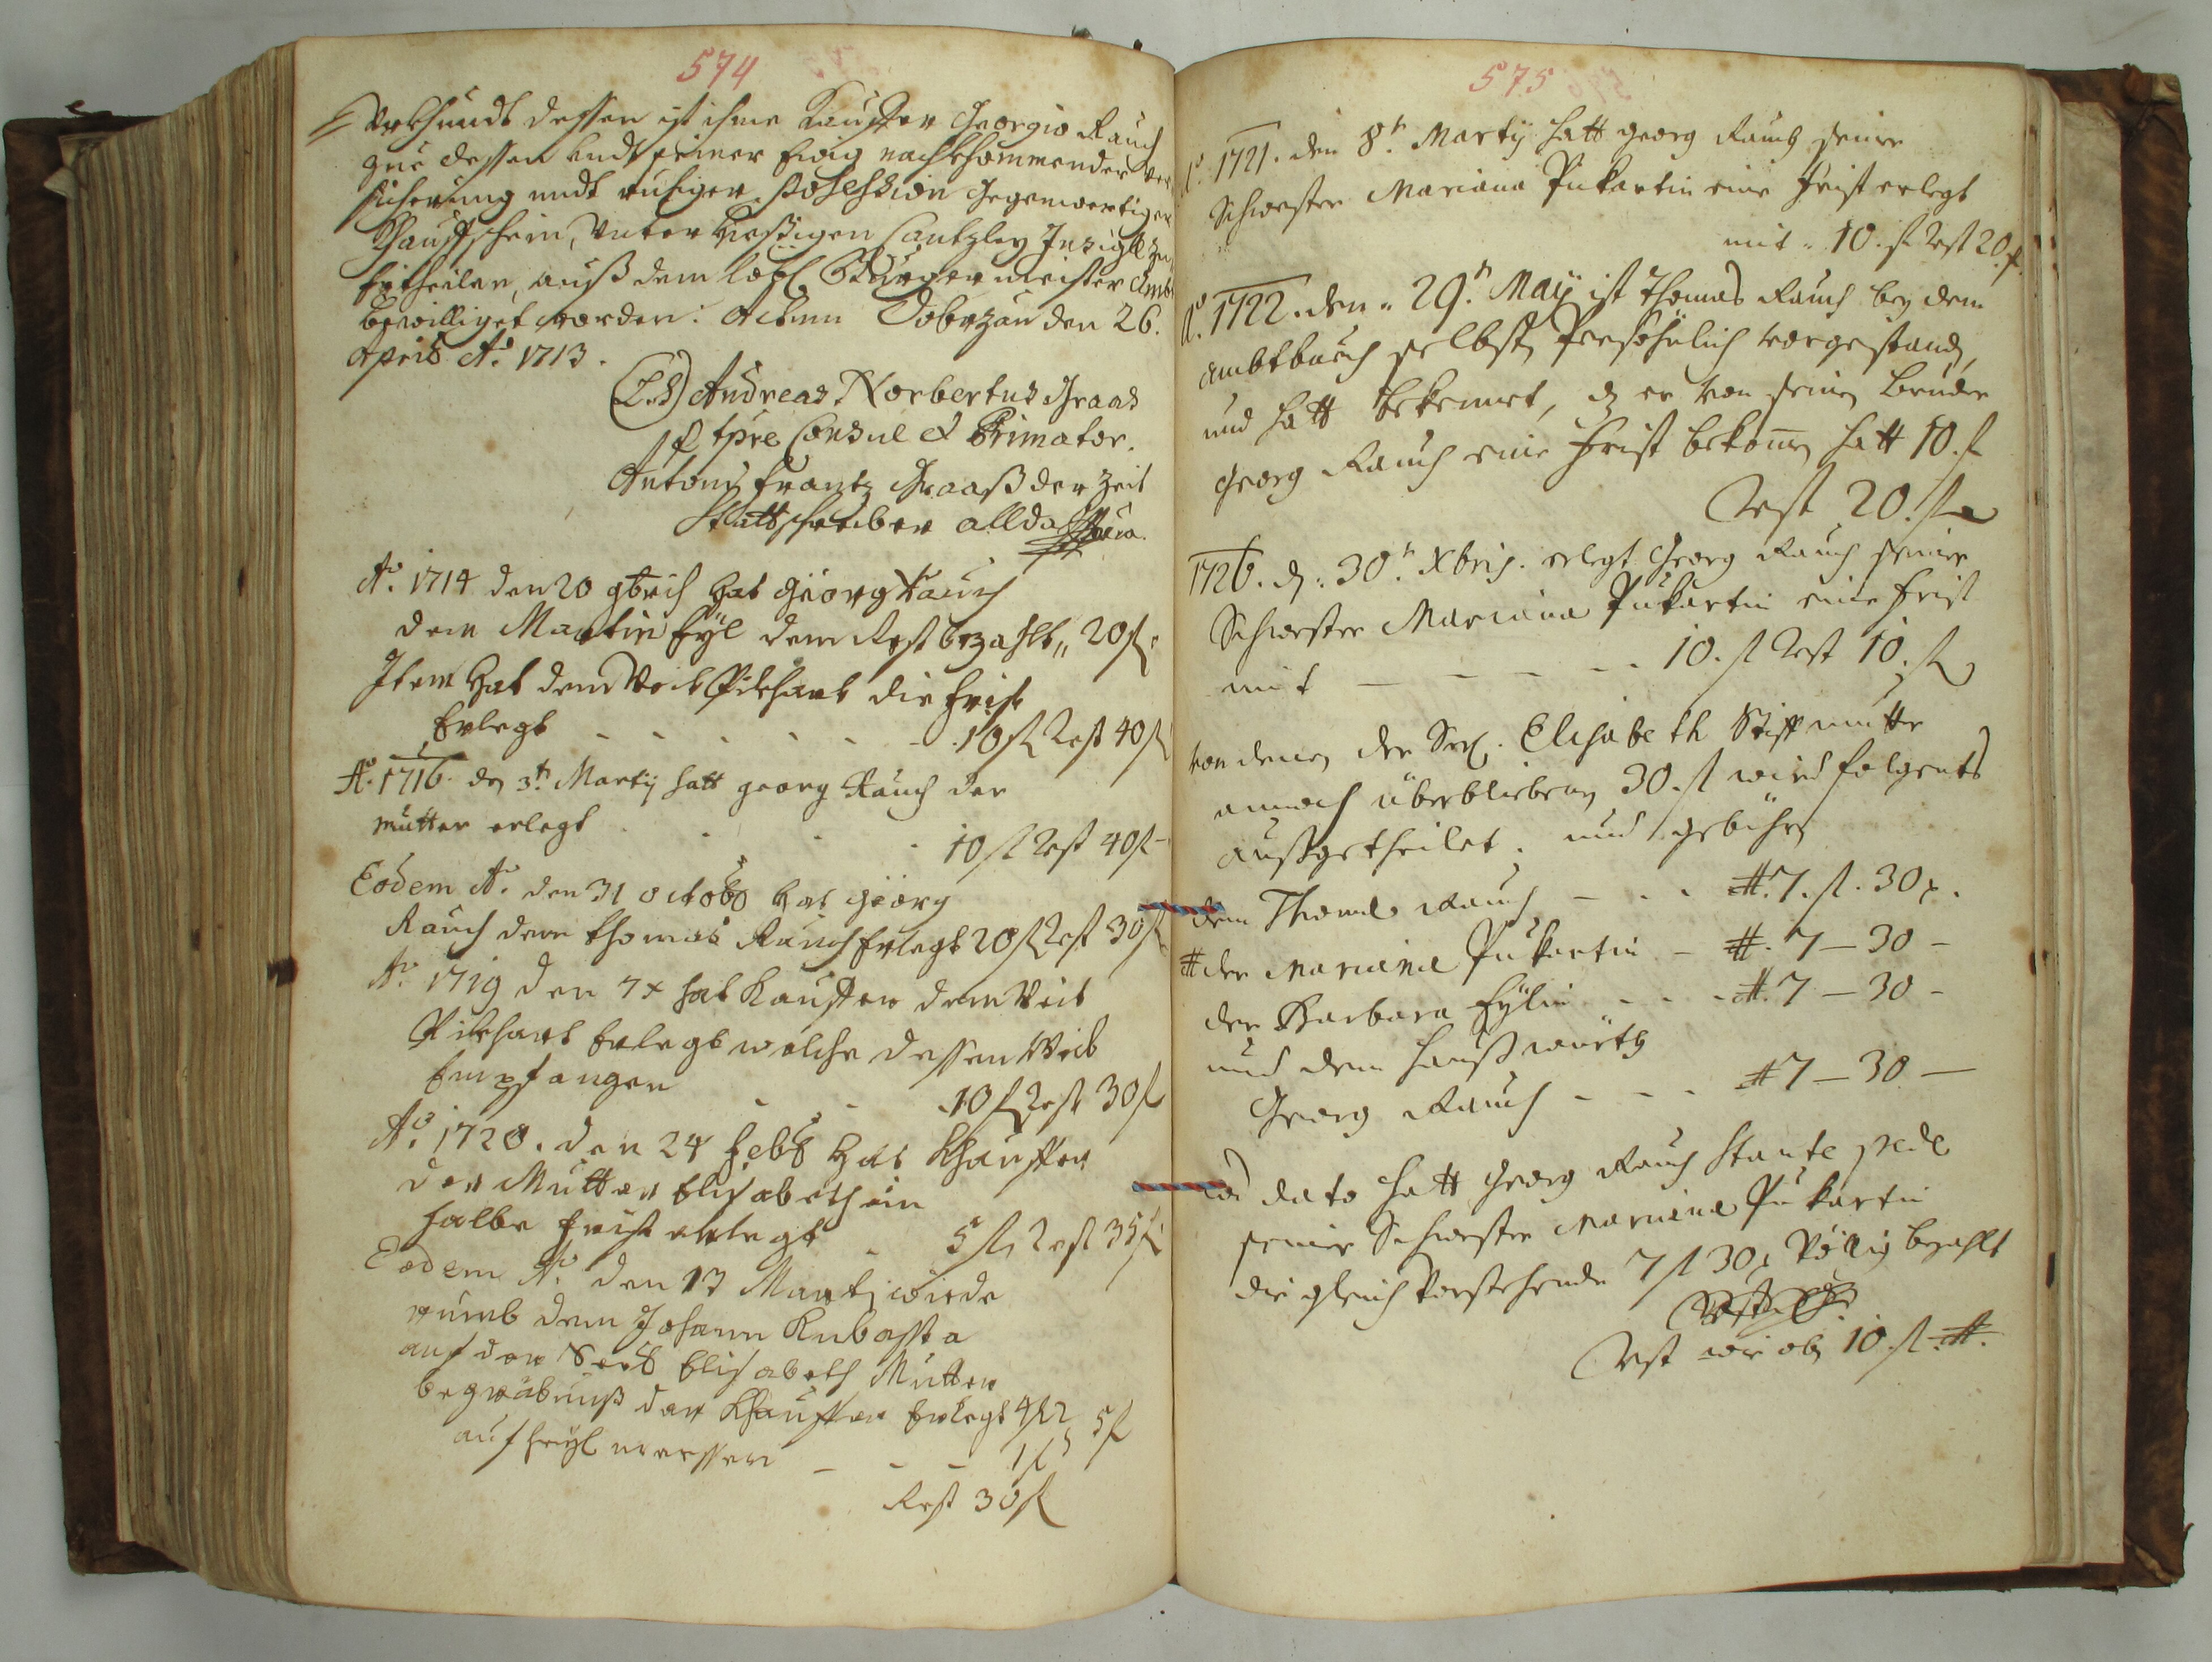 574
Urkhundt dessen ist ihme Kauffer Georgio Rauch
gue dessen undt seiner Ewig nachkhommender Ver
sicherung undt ruhiger Possession gegenwertiger
Khauffschein, Unter hießigen Cantzley Insigll zu
Ertheilen, auß dem löbl. Burgermeister Ambt
bewilliget worden. Actum Dobrzan den 26.
Aprils Ao. 1713.
(L.S) Andreas Norbertus Graas
p tpre Consul et Primator.
Antoni Frantz Graaß der Zeit
Stattschreiber allda
Ao. 1714 den 20 9bris hat Georg Rauch
dem Martin Eyl den Rest bezahlt 20 fl.
Item hat dem Veit Pikhart die Frist
Erlegt - - - - - - 10 fl Rest 40 fl
Ao. 1716. den 3t. Martij hatt georg Rauch der
Mutter erlegt . . . 10 fl Rest 40 fl-
Eodem Ao. den 31 octobr hat Georg
Rauch dem Thomas Rauch Erlegt 20 fl Rest 30 fl
Ao. 1719 den hat Kauffer dem Veit
Pikhart Erlegt welche dessen Weib
Empfangen - - 10 fl Rest 30 fl
Ao. 1720. den 24 Febr hat Khauffer
der Mutter Elisabeth ein
halbe Frist erlegt - 5 fl Rest 35 fl
Eodem Ao. den 13 Marti
dem Johann
auf der Seel Elisabeth Mutter
begräbnuß der Khauffer Erlegt 4 fl
auf heyl messen - - - 1 fl 5 fl
Rest 30 fl
575
Ao. 1721. den 8t. Martij hatt georg Rauch seiner
Schwester Mariana Pukartin eine Frist erlegt
mit . 10. fl Rest 20. fl.
Ao. 1722. den . 29t. Maij ist Thomas Rauch bey dem
ambtbuch selbst Persöhnlich vorgestand,
und hatt bekennet, dz er von seinen Bruder
Georg Rauch eine Frist bekomen hatt 10. fl
Rest 20. fl
1726. d. 30t. Xbris. erlegt Georg Rauch seiner
Schwester Mariana Pukartin eine Frist
mit - - - - 10. fl Rest 10. fl
von denen der Seel. Elisabeth Stiffmutter
annoch überblibenen 30. fl wird folgents
außgetheilet. und gebühren
dem Thomas Rauch - - - #. 7. fl. 30 x.
# der Mariana Pukartin - #. 7 - 30 -
der Barbara Eylin - - - #. 7 - 30 -
und dem haußwürth
Georg Rauch - - - # 7 - 30 -
dato hatt Georg Rauch stante pede
seiner Schwester Mariana Pukartin
die gleich Vorstehende 7 fl 30 x Völlig bezahlt
Rest wie ob 10. fl #.